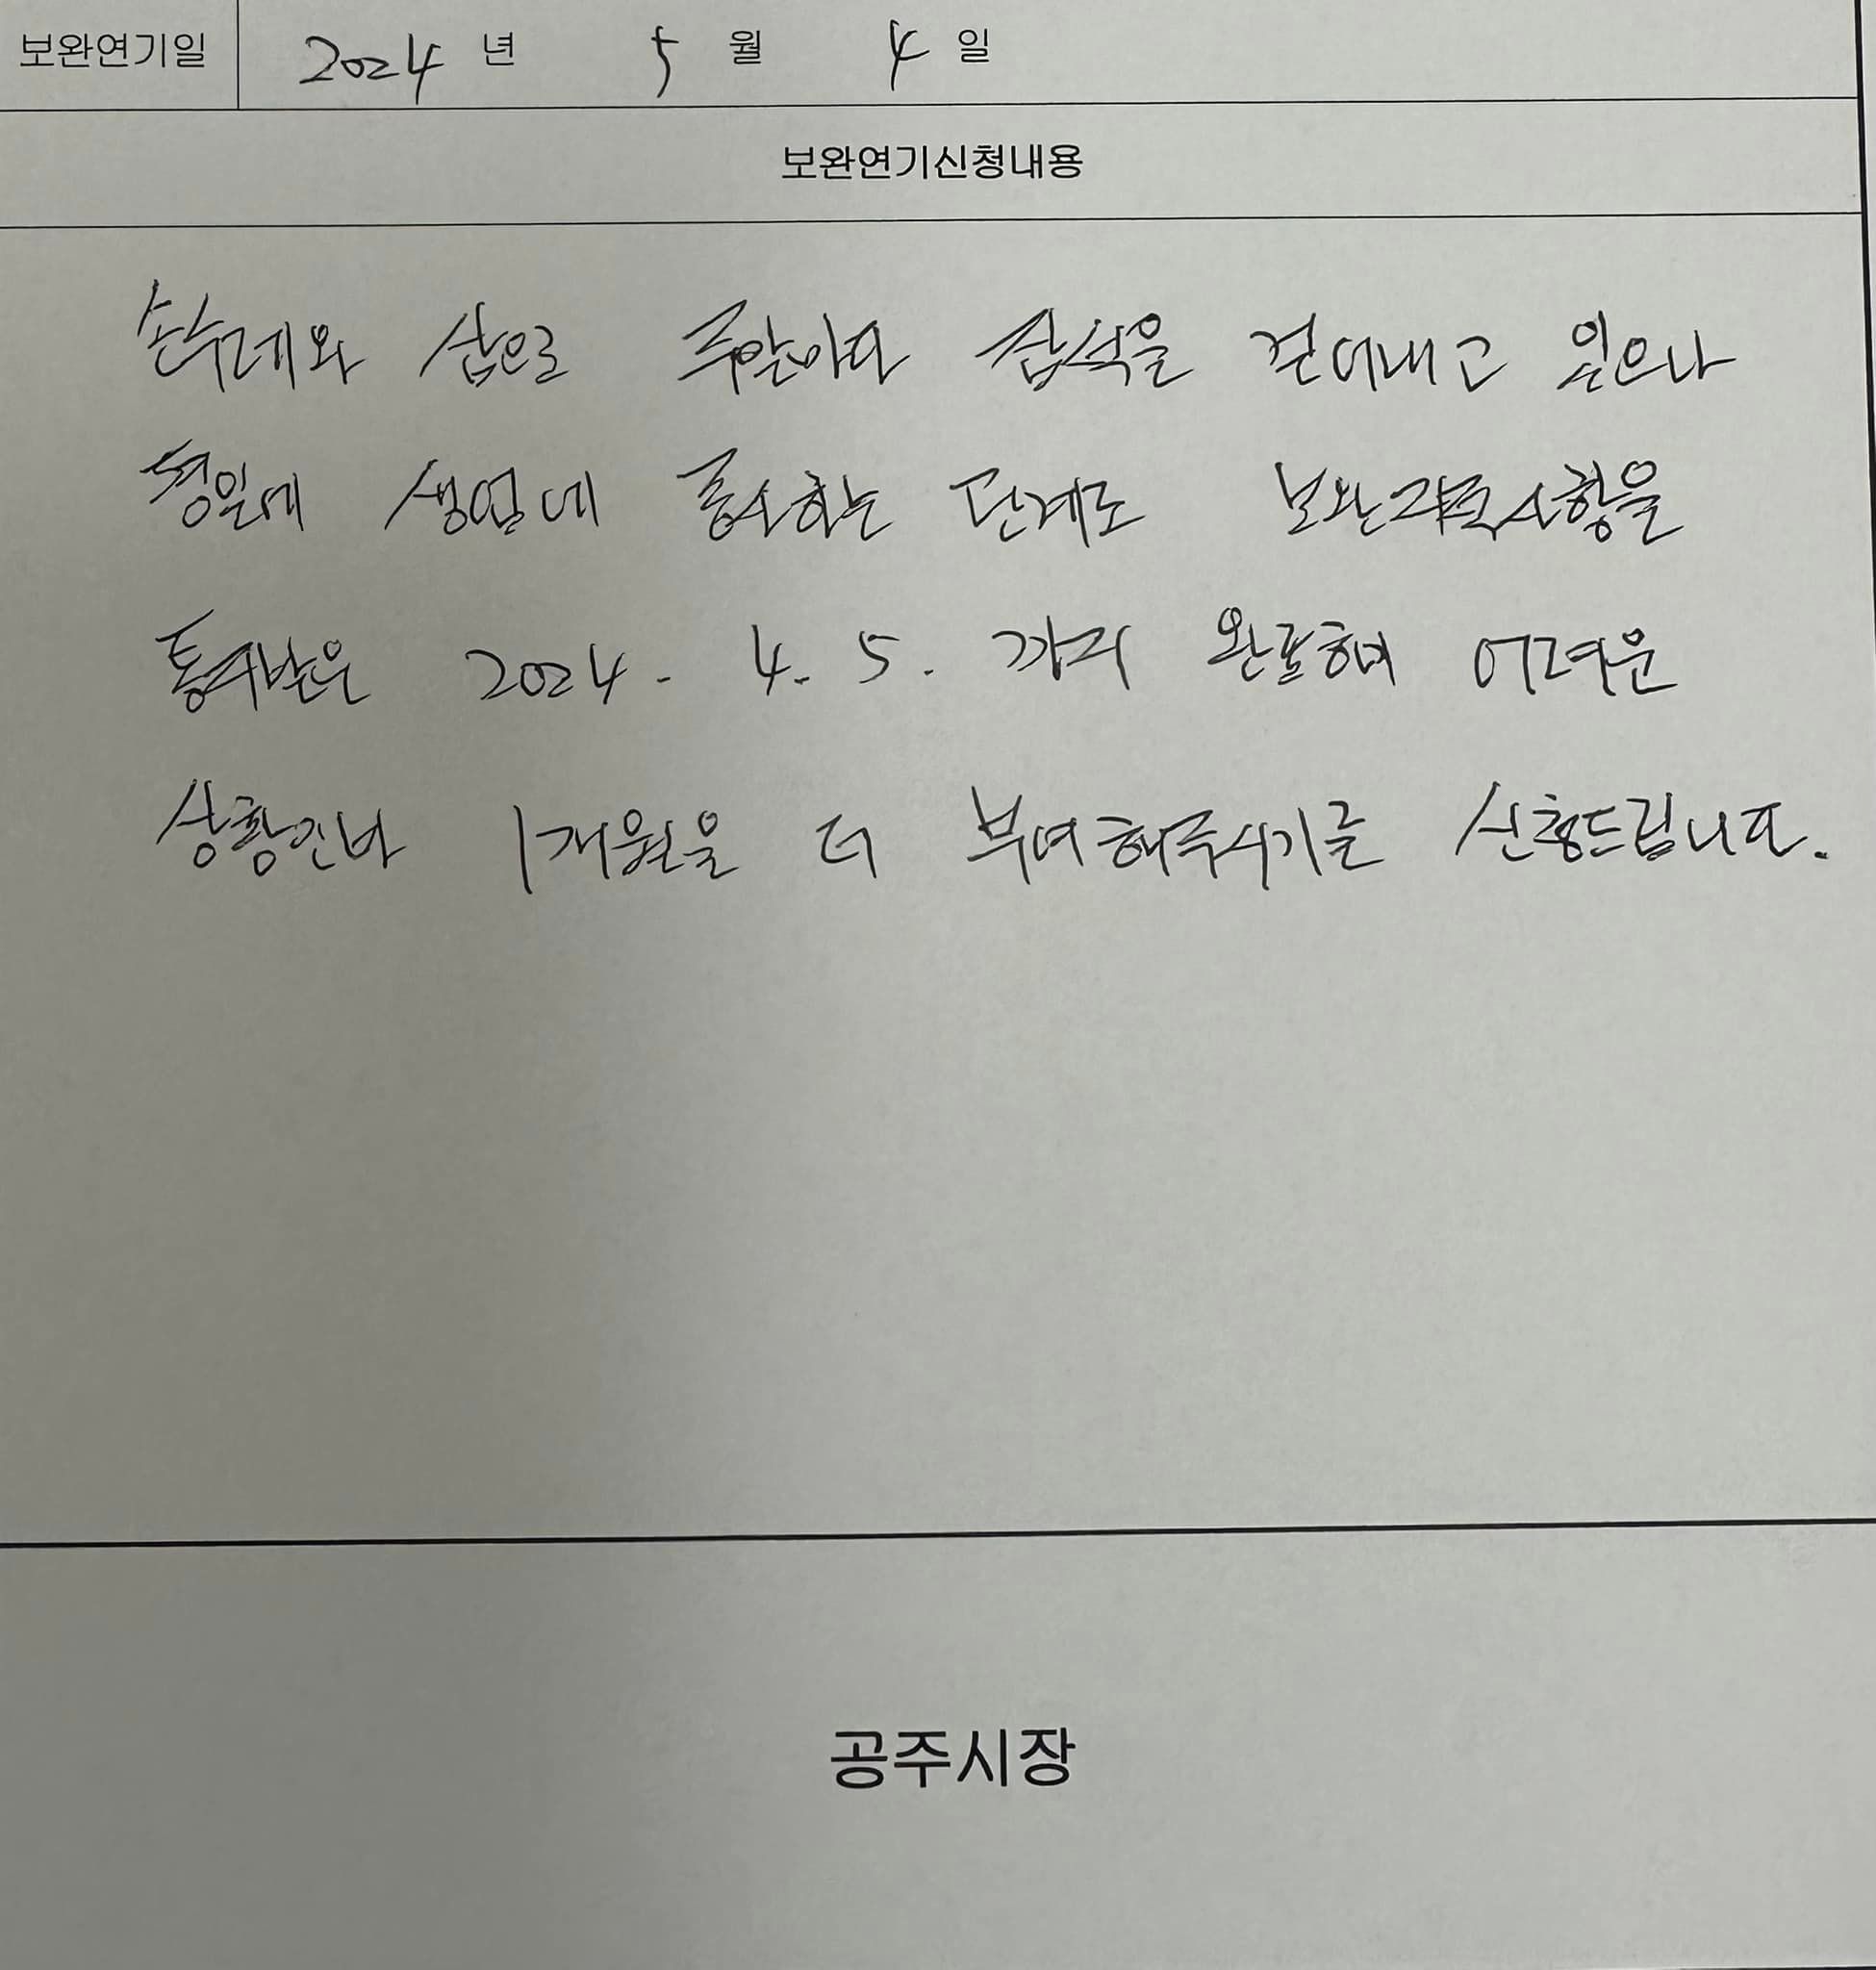 보완연기일 2024 년 5 월 4 일
보완연기신청내용
손수레와 삽으로 주말마다 잡석을 걷어내고 있으나
평일에 생업에 종사하는 관계로 보완요구사항을
통보받은 2024. 4. 5. 까지 완료하기 어려운
상황인바 1개월을 더 부여해주시기를 신청드립니다.
공주시장